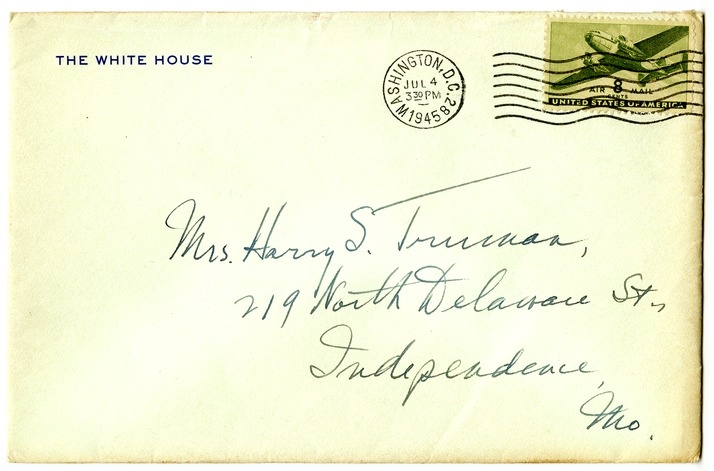 THE WHITE HOUSE
WASHINGTON, D.C. 28
JUL 4
3 30 PM
1945
AIR 8 MAIL
CENTS
UNITED STATES OF AMERICA
Mrs. Harry S. Truman,
219 North Delaware St.,
Independence,
Mo.